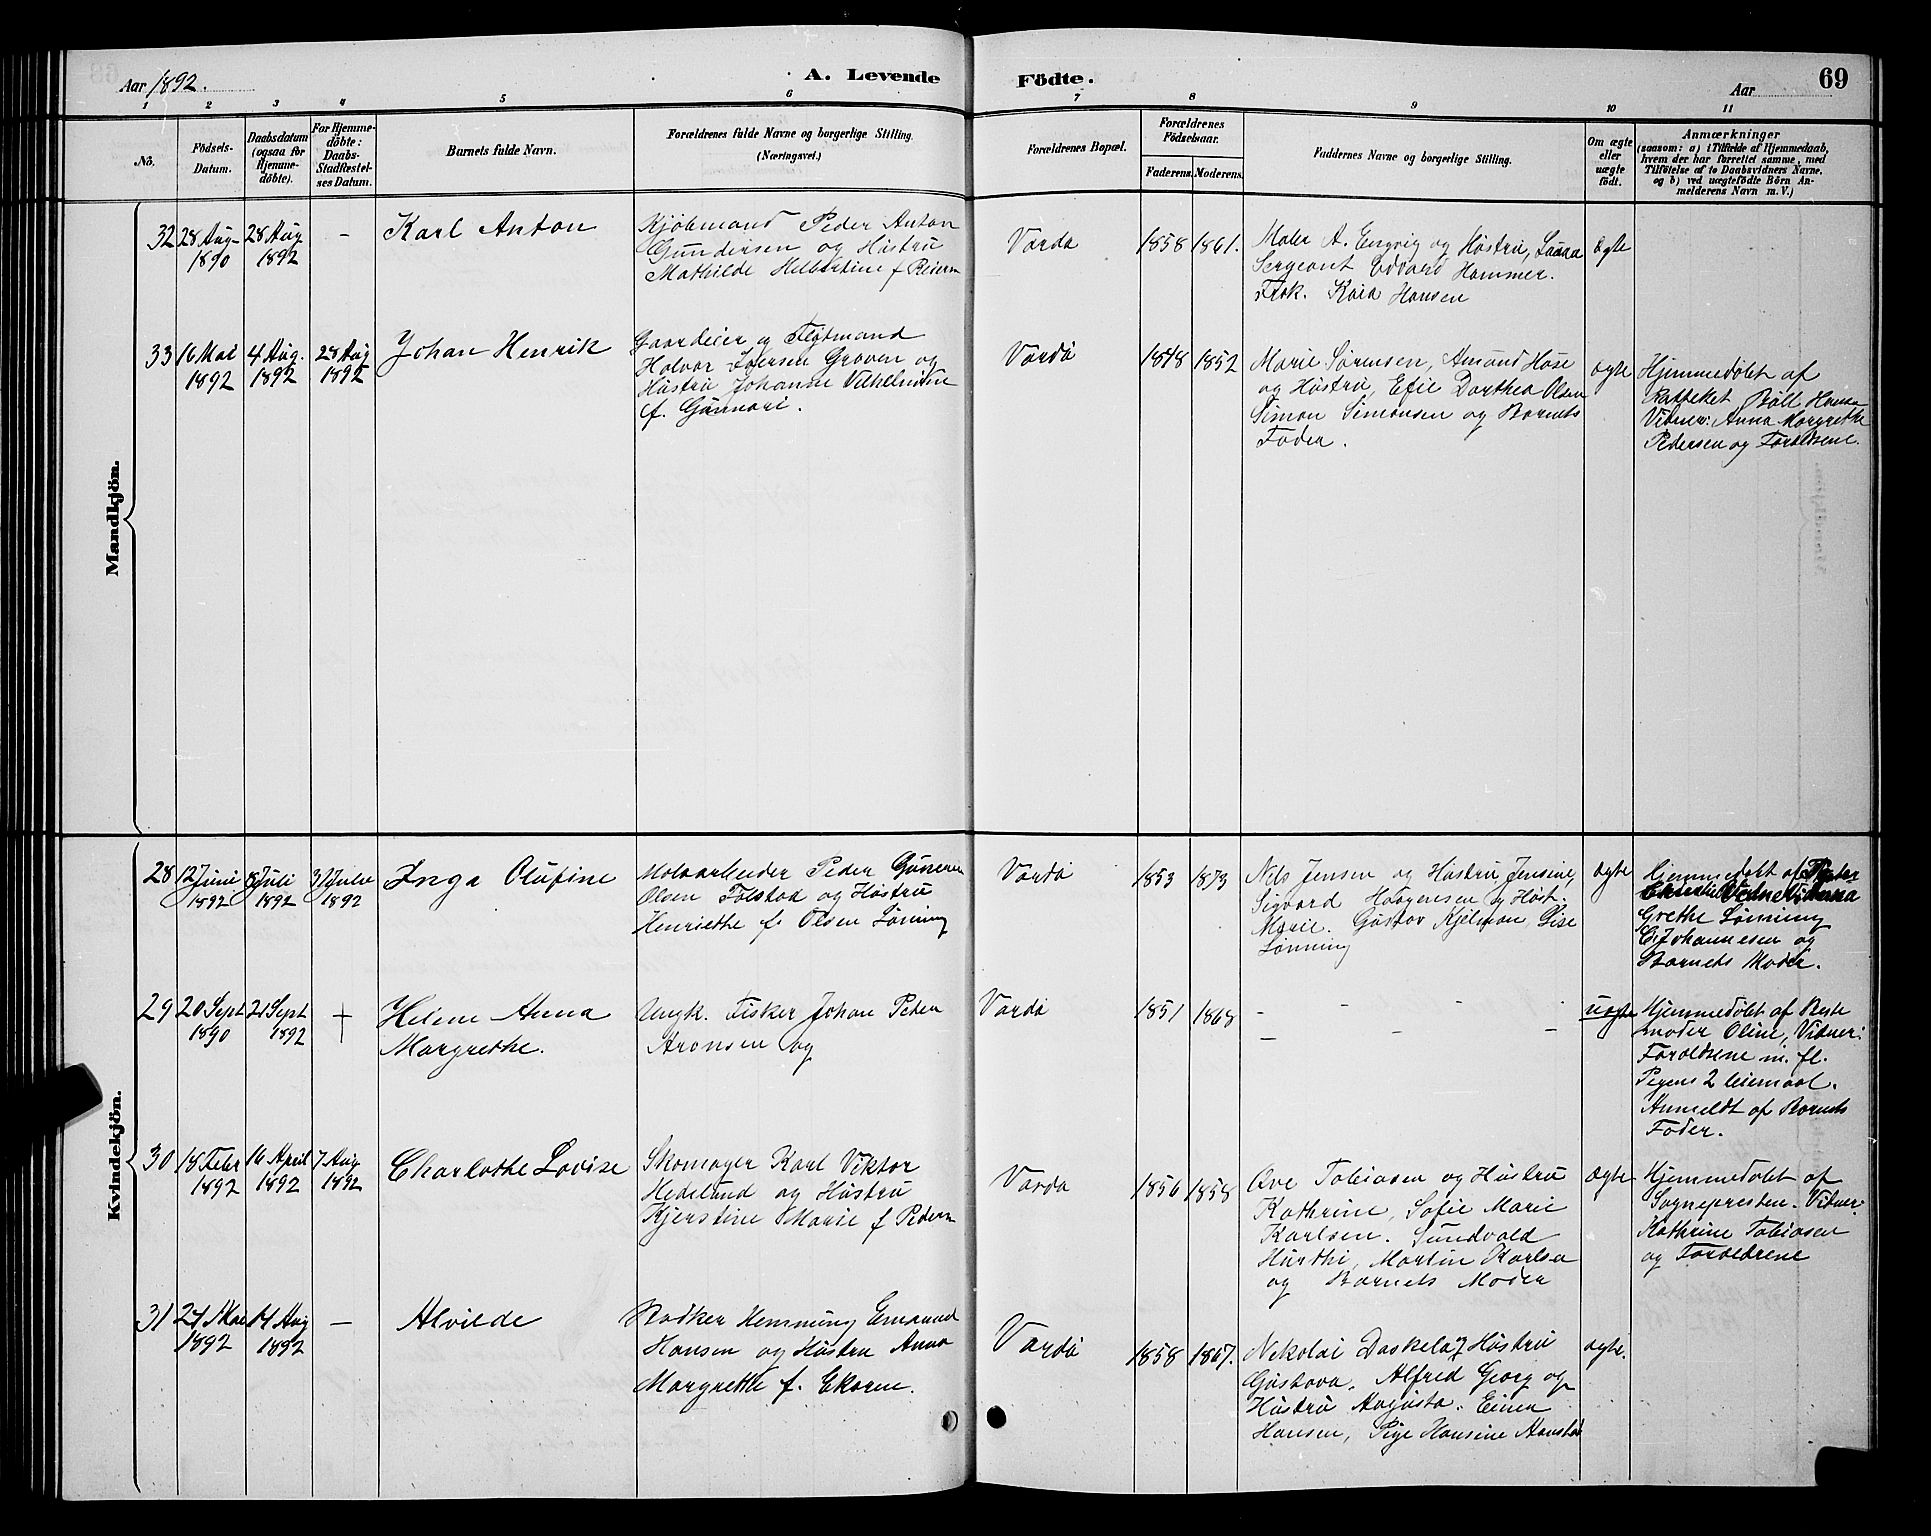 Aar 1892.
A. Levende
Födte.
Aar
69
1 2 3 4 5 6 7 8 9 10 11
No.
Födsels-
Datum.
Daabsdatum
(ogsaa for
Hjemme-
döbte).
For Hjemme-
döbte:
Daabs-
Stadfæstel-
ses Datum.
Barnets fulde Navn.
Forældrenes fulde Navne og borgerlige Stilling.
(Næringsvei.)
Forældrenes Bopæl.
Forældrenes
Födselsaar.
Faderens.
Moderens.
Faddernes Navne og borgerlige Stilling.
Om ægte
eller
uægte
födt.
Anmærkninger
(saasom: a) i Tilfælde af Hjemmedaab,
hvem der har forrettet samme, med
Tilföielse af to Daabsvidners Navne,
og b) ved uægtefödte Börn An-
melderens Navn m. V.)
Mandkjön.
32
28 Aug
1890
28 Aug
1892
-
Karl Anton
Kjöbmand Peder Anton
Gundersen og Hustru
Mathilde Helbertine f
Vardö
1858
1861.
Maler A. Engvig og Hustru,
Sergeant Edvard Hammer.
Frøk. Kaia Hansen
ægte
33
16 Mai
1892
4 Aug.
1892
28 Aug
1892
Johan Henrik
Gaardeier og
Halvor Iversen Groven og
Hustru Johanne Vilhelmine
f. Gunnari.
Vardö
1848
1852
Marie Sørensen, Amund Hose
og Hustru, Efie Dorthea Olsen
Simon Simonsen og Barnets
Fader.
ægte
Hjemmedöbt af
Hansen
Vidner: Anna Margrethe
Pedersen og Forældrene.
Kvindekjön.
28
12 Juni
1892
8 Juli
1892
31 Juli
1892
Inga Olufine
Moloarbeider Peder
Olsen Folstad og Hustru
Henriethe f. Olsen Lönning
Vardö
1853
1873
Nils Jensen og Hustru Jensine,
Sigvard Haagensen og Hust.
Marie. Gustav Kjelman, Lise
Lönning
ægte
Hjemmedöbt af
Grethe Lönning
Johannesen og
Barnets Moder.
29
20 Sept
1890
21 Sept
1892
+
Helene Anna
Margrethe.
Ungk. Fisker Johan Peder
Aronsen og
Vardö
1851
1868
- - - -
- - -
uægte
Hjemmedöbt af Beste
moder Oline, Vidner:
Forældrene m. fl.
Pigens 2 leiermaal.
Anmeldt af Barnets
Fader.
30
18 Febr
1892
16 April
1892
7 Aug
1892
Charlothe Lovise
Skomager Karl Viktor
Hedelund og Hustru
Kjerstine Marie f Pedersen
Vardö
1856
1858
Ove Tobiasen og Hustru
Kathrine, Sofie Marie
Karlsen. Sundvald
Hurthi, Martin Karlsen
og Barnets Moder
ægte
Hjemmedöbt af
Sognepresten. Vidner:
Kathrine Tobiasen
og Forældrene
31
24 Mai
1892
14 Aug
1892
-
Alvilde
Bödker Hemming Emanuel
Hansen og Hustru Anna
Margrethe f. Ekoren.
Vardö
1858
1867.
Nikolai Daskeland Hustru
Gustava. Alfred Georg og
Hustru Augusta. Einer
Hansen, Pige Hansine
ægte.